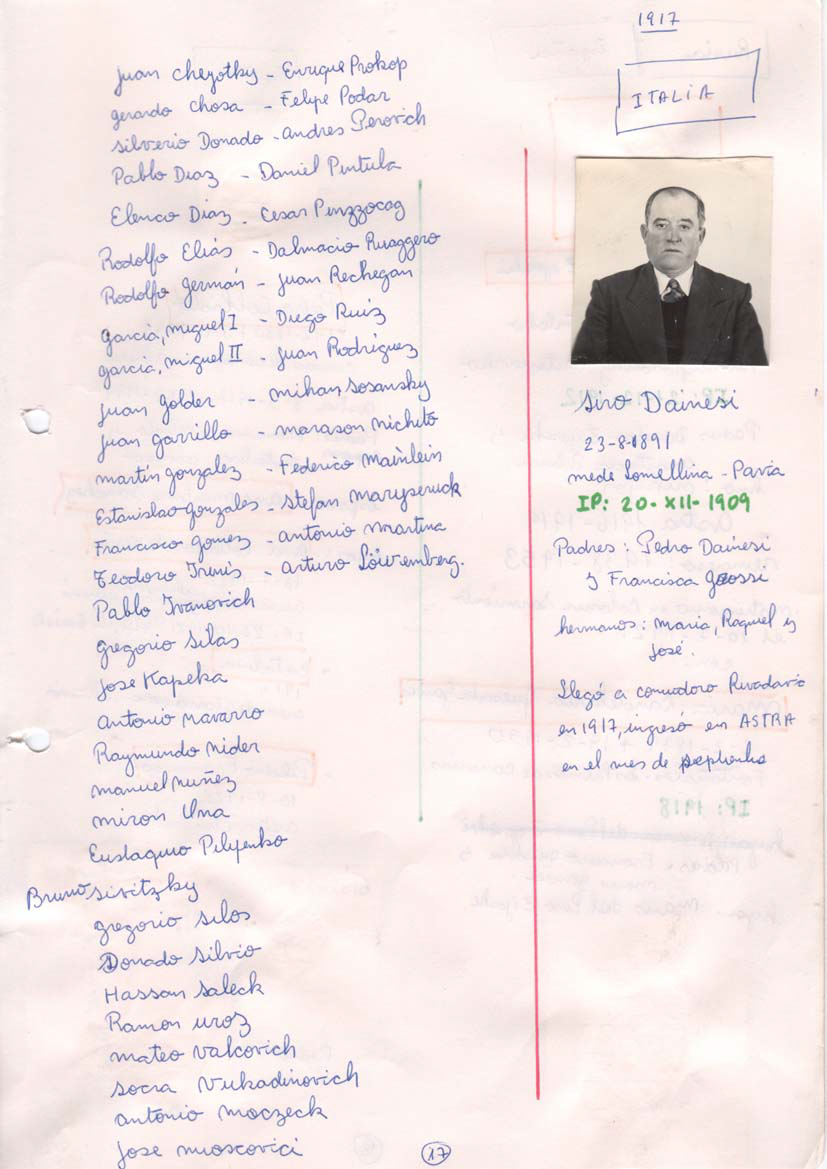 Juan Chezotky - Enrique Prokop
gerardo Chosa - Felipe Podar
Silverio Donado - Andres Perovich
Pablo Diaz - Daniel Pintula
Elenco Diaz - Cesar Pinzzocag
Rodolfo Eliás - Dalmacio Ruaggero
Rodolfo germán - Juan Rechegan
garcia, miguel I - Diego Ruiz
garcia, miguel II - Juan Rodriguez
Juan golder - mihan Sosansky
Juan garrillo - marason michito
martín gonzalez - Federico Mainlein
Estanislao gonzales - Stefan Maryseruck
Francisco gomez - antonio martina
Teodoro Irenis - arturo Löwremberg.
Pablo Ivanovich
gregorio Silas
Jose Kapeka
Antonio navarro
Raymundo nider
manuel nuñez
miron Una
Eustaquio Pilyenko
Bruno Sivitzky
gregorio silos
Donado Silvio
Hassan Saleck
Ramon uroz
mateo Valcovich
socra Vukadinovich
antonio moczeck
Jose muoscovici
1917
ITALIA
Siro Dainesi
23-8-1891
mede Lomellina - Pavia
IP: 20-XII-1909
Padres: Pedro Dainesi
y Francisca Grossi
hermanos: maria, Raquel y
José.
Llegó a comodoro Rivadavia
en 1917, ingresó en ASTRA
en el mes de septiembre
17